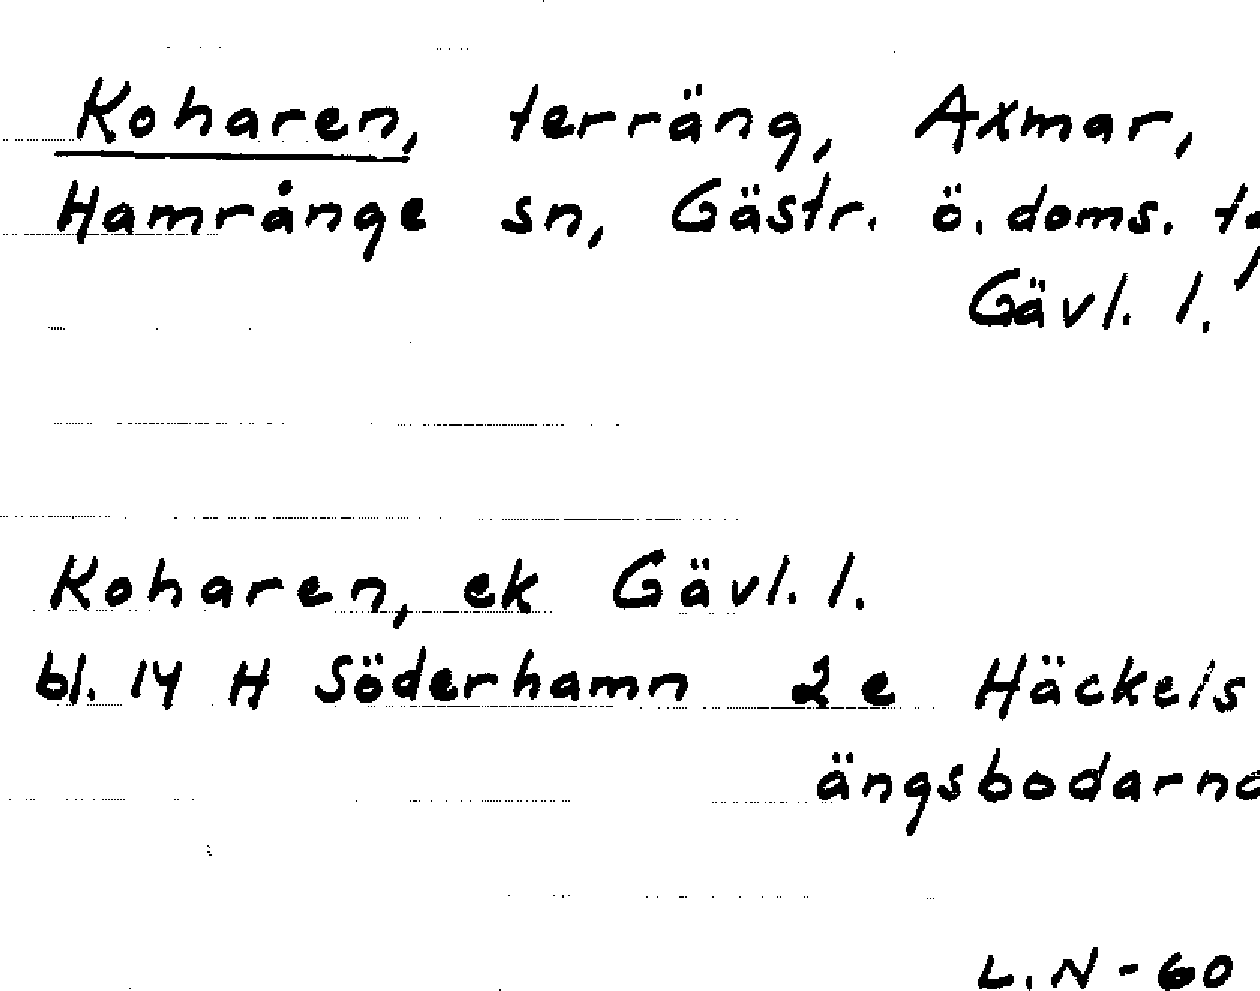 Koharen, terräng, Axmar,
Hamrånge sn, Gästr. ö. doms.
Gävl. l.
Koharen, ek Gävl. l.
bl. 14 H Söderhamn 2 e Häckels
ängsbodarna
L.N-60